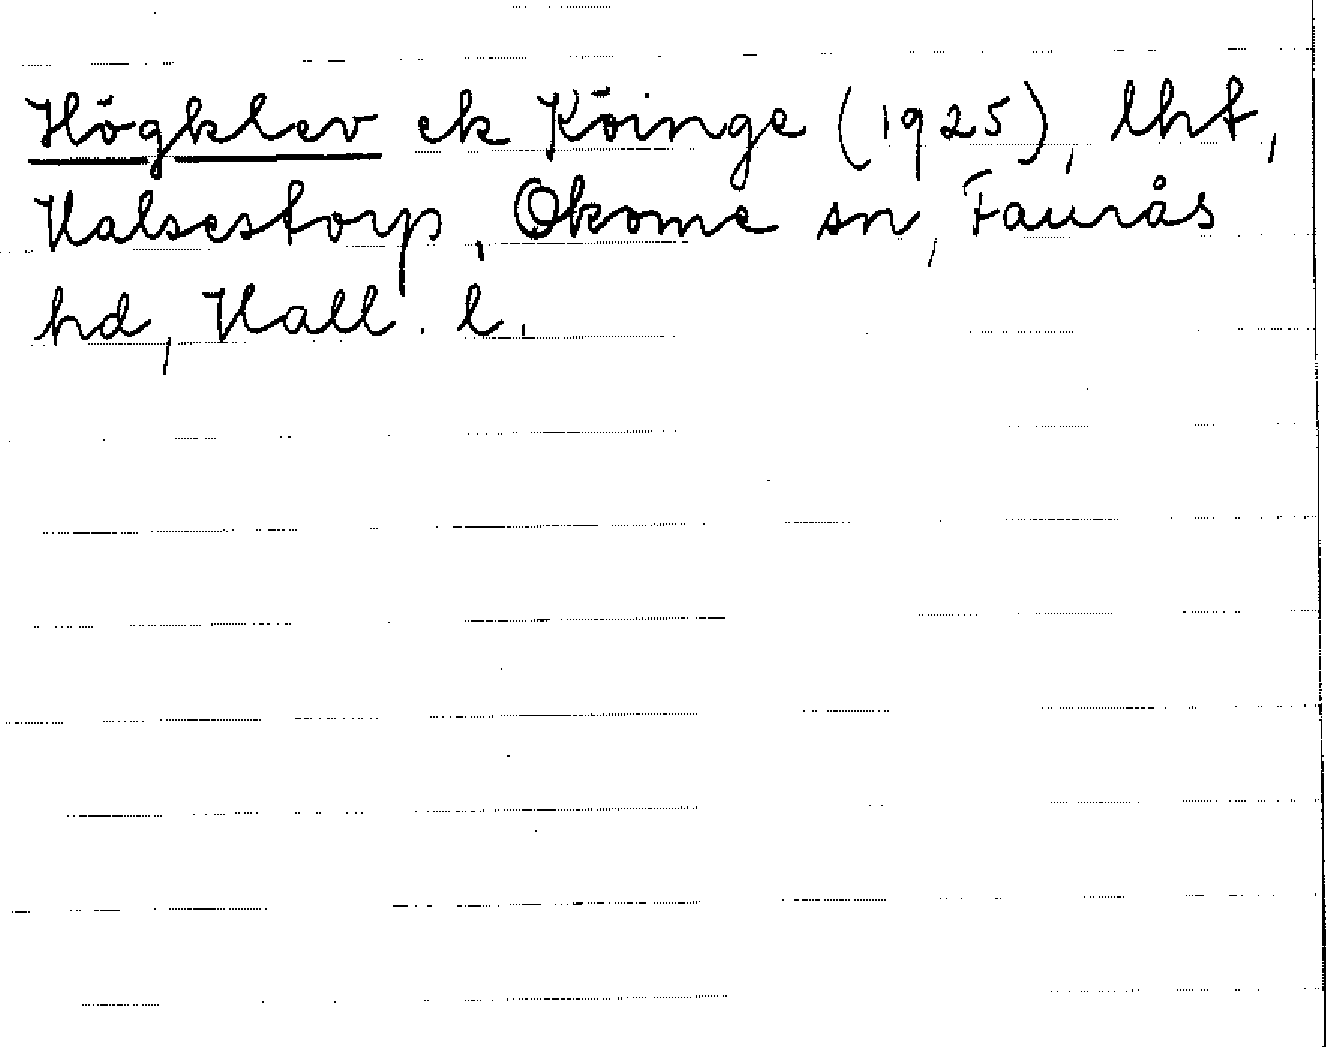 Högklev ek Köinge (1925), lht,
Valsestorp, Okome sn, Faurås
hd, Hall. l.